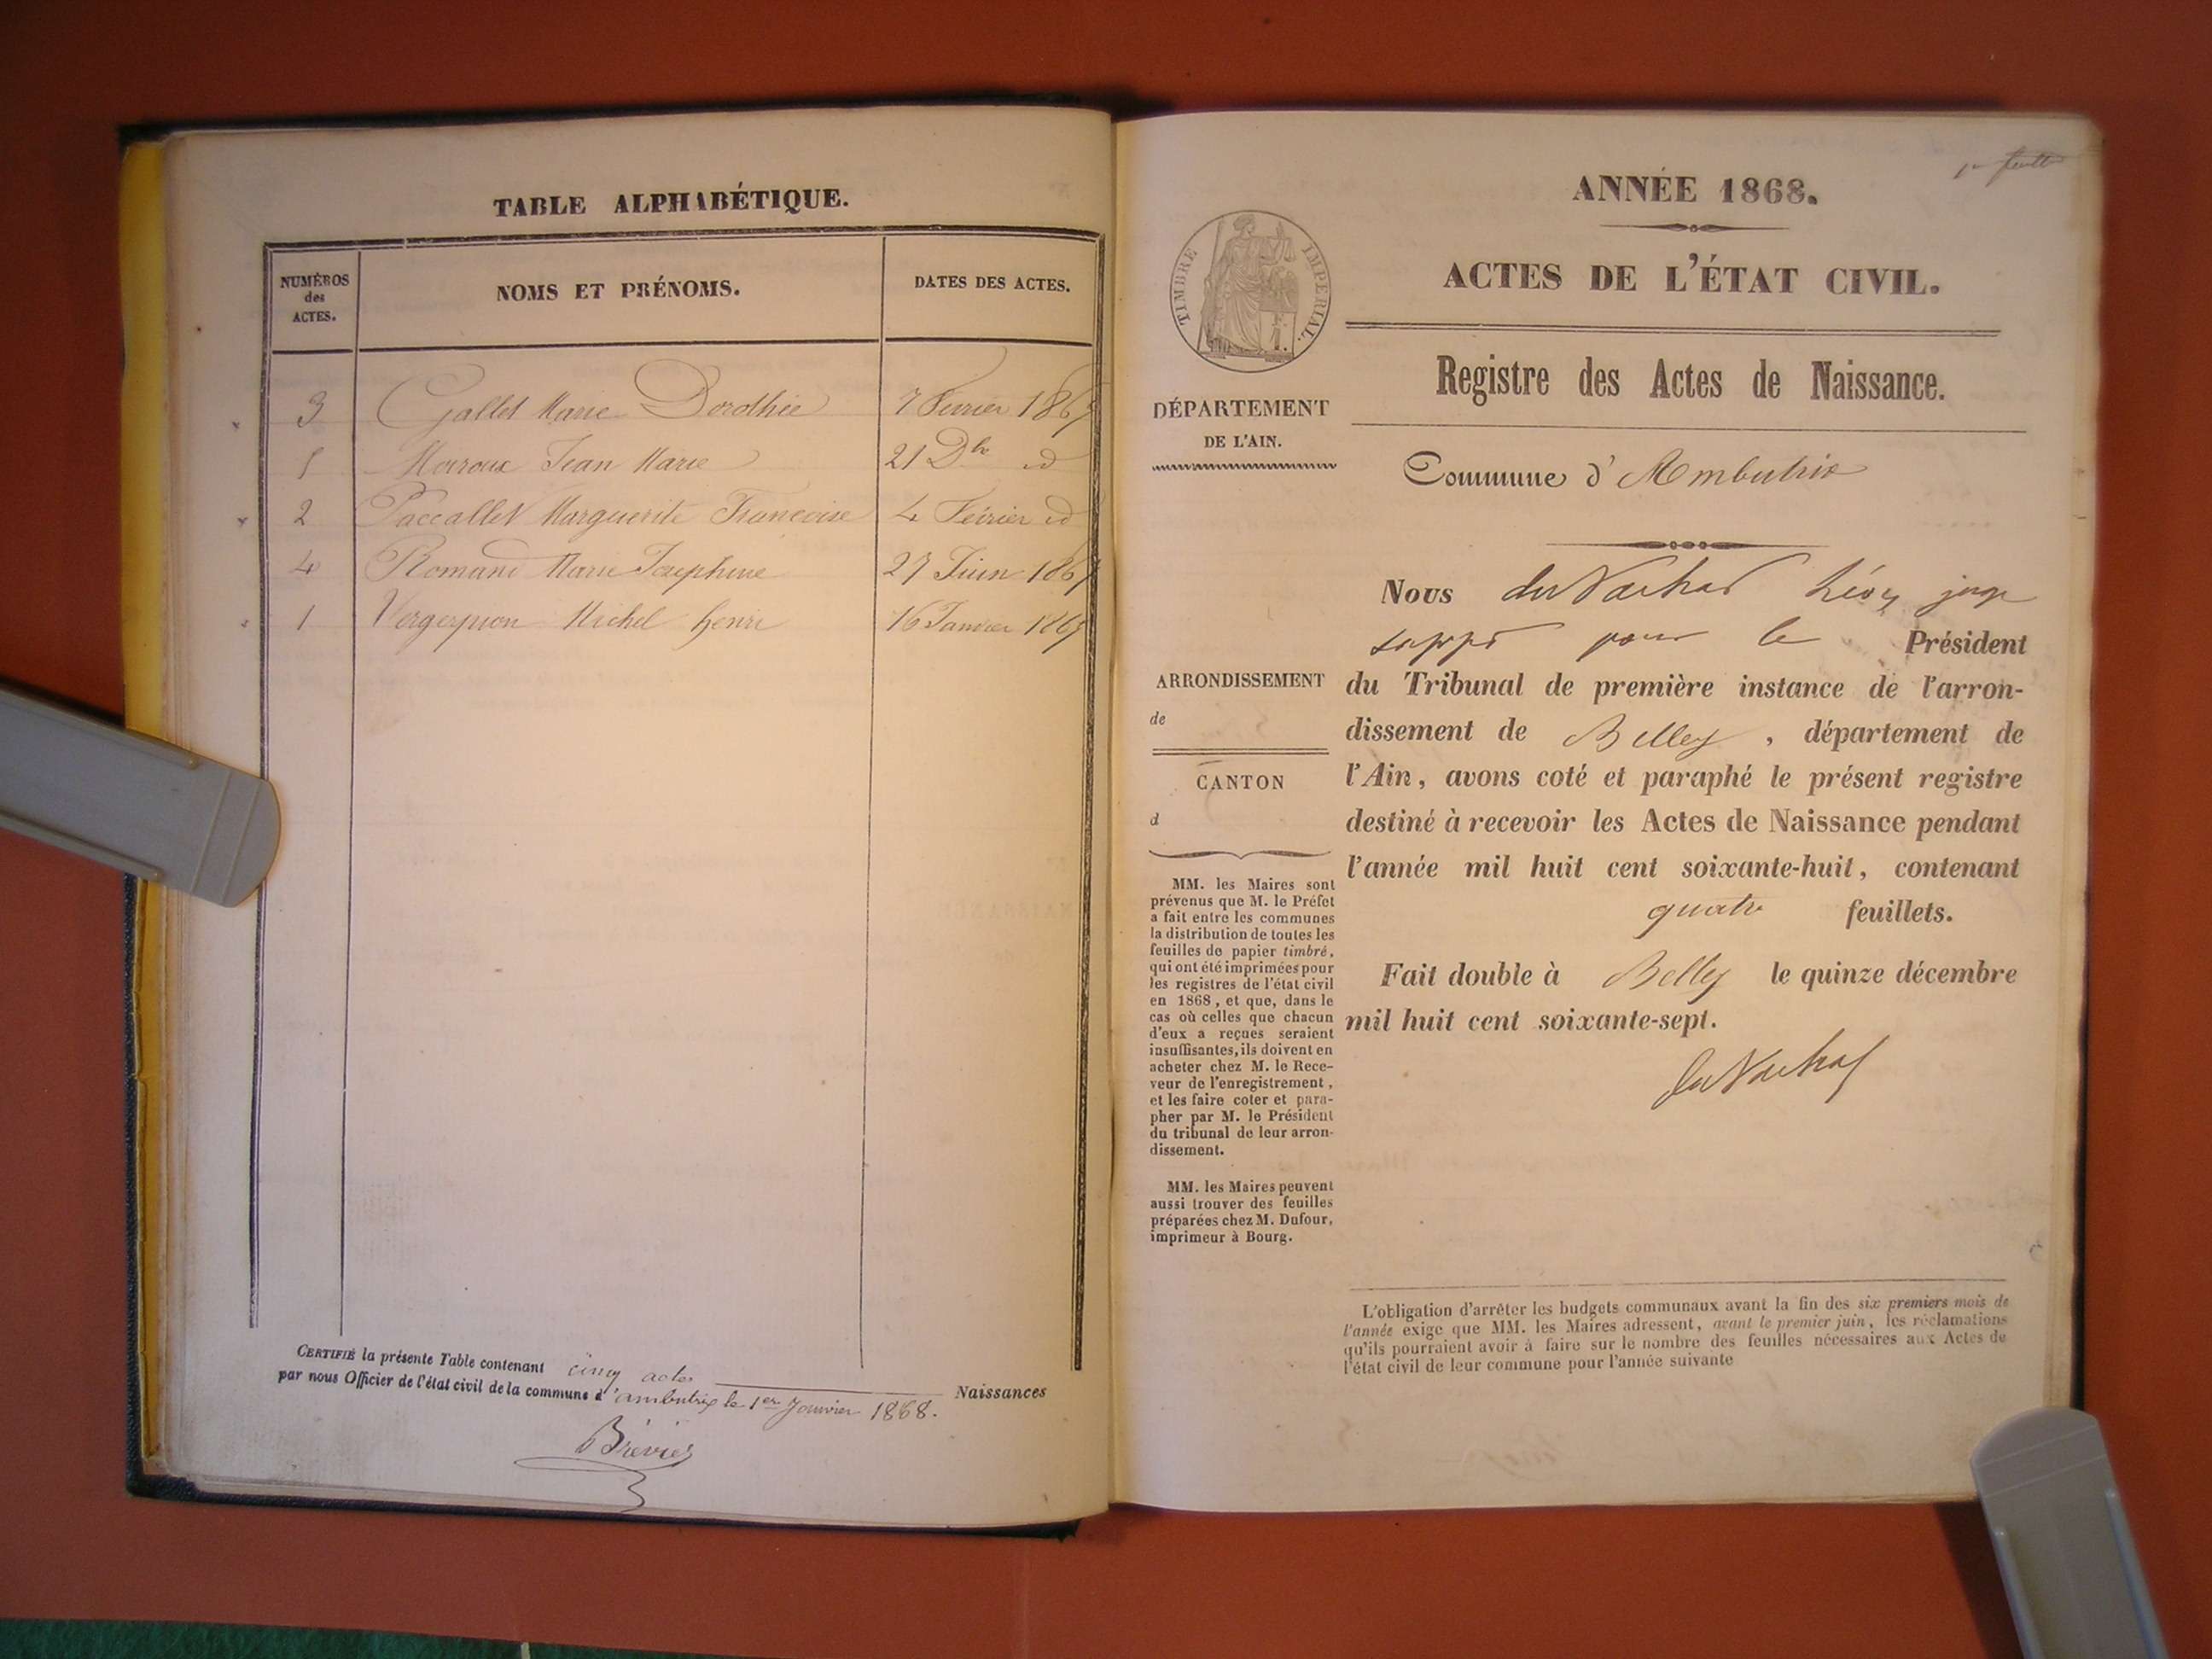 TABLE ALPHABÉTIQUE.
NUMÉROS des ACTES. NOMS ET PRÉNOMS. DATES DES ACTES.
3 Gallet Marie Dorothée 7 Février 1867
5 Jean Marie 21 Dbr id
2 Paccallet Marguerite Françoise 4 Février id
4 Romand Marie Josephine 27 Juin 1867
1 Vergerpion Michel henri 16 Janvier 1867
CERTIFIÉ la présente Table contenant cinq actes Naissances
par nous Officier de l'état civil de la commune d'ambutrix le 1er Janvier 1868.
Brévier
ANNÉE 1868.
ACTES DE L'ÉTAT CIVIL.
Registre des Actes de Naissance.
Commune d'Ambutrix
TIMBRE IMPÉRIAL.
DÉPARTEMENT
DE L'AIN.
ARRONDISSEMENT
de
CANTON
d
MM. les Maires sont
prévenus que M. le Préfet
a fait entre les communes
la distribution de toutes les
feuilles de papier timbré,
qui ont été imprimées pour
les registres de l'état civil
en 1868, et que, dans le
cas où celles que chacun
d'eux a reçues seraient
insuffisantes, ils doivent en
acheter chez M. le Rece-
veur de l'enregistrement,
et les faire coter et para-
pher par M. le Président
du tribunal de leur arron-
dissement.
MM. les Maires peuvent
aussi trouver des feuilles
préparées chez M. Dufour,
imprimeur à Bourg.
Nous Léon juge
suppt pour le Président
du Tribunal de première instance de l'arron-
dissement de Belley, département de
l'Ain, avons coté et paraphé le présent registre
destiné à recevoir les Actes de Naissance pendant
l'année mil huit cent soixante-huit, contenant
quatre feuillets.
Fait double à Belley le quinze décembre
mil huit cent soixante-sept.
L'obligation d'arrêter les budgets communaux avant la fin des six premiers mois de
l'année exige que MM. les Maires adressent, avant le premier juin, les réclamations
qu'ils pourraient avoir à faire sur le nombre des feuilles nécessaires aux Actes de
l'état civil de leur commune pour l'année suivante